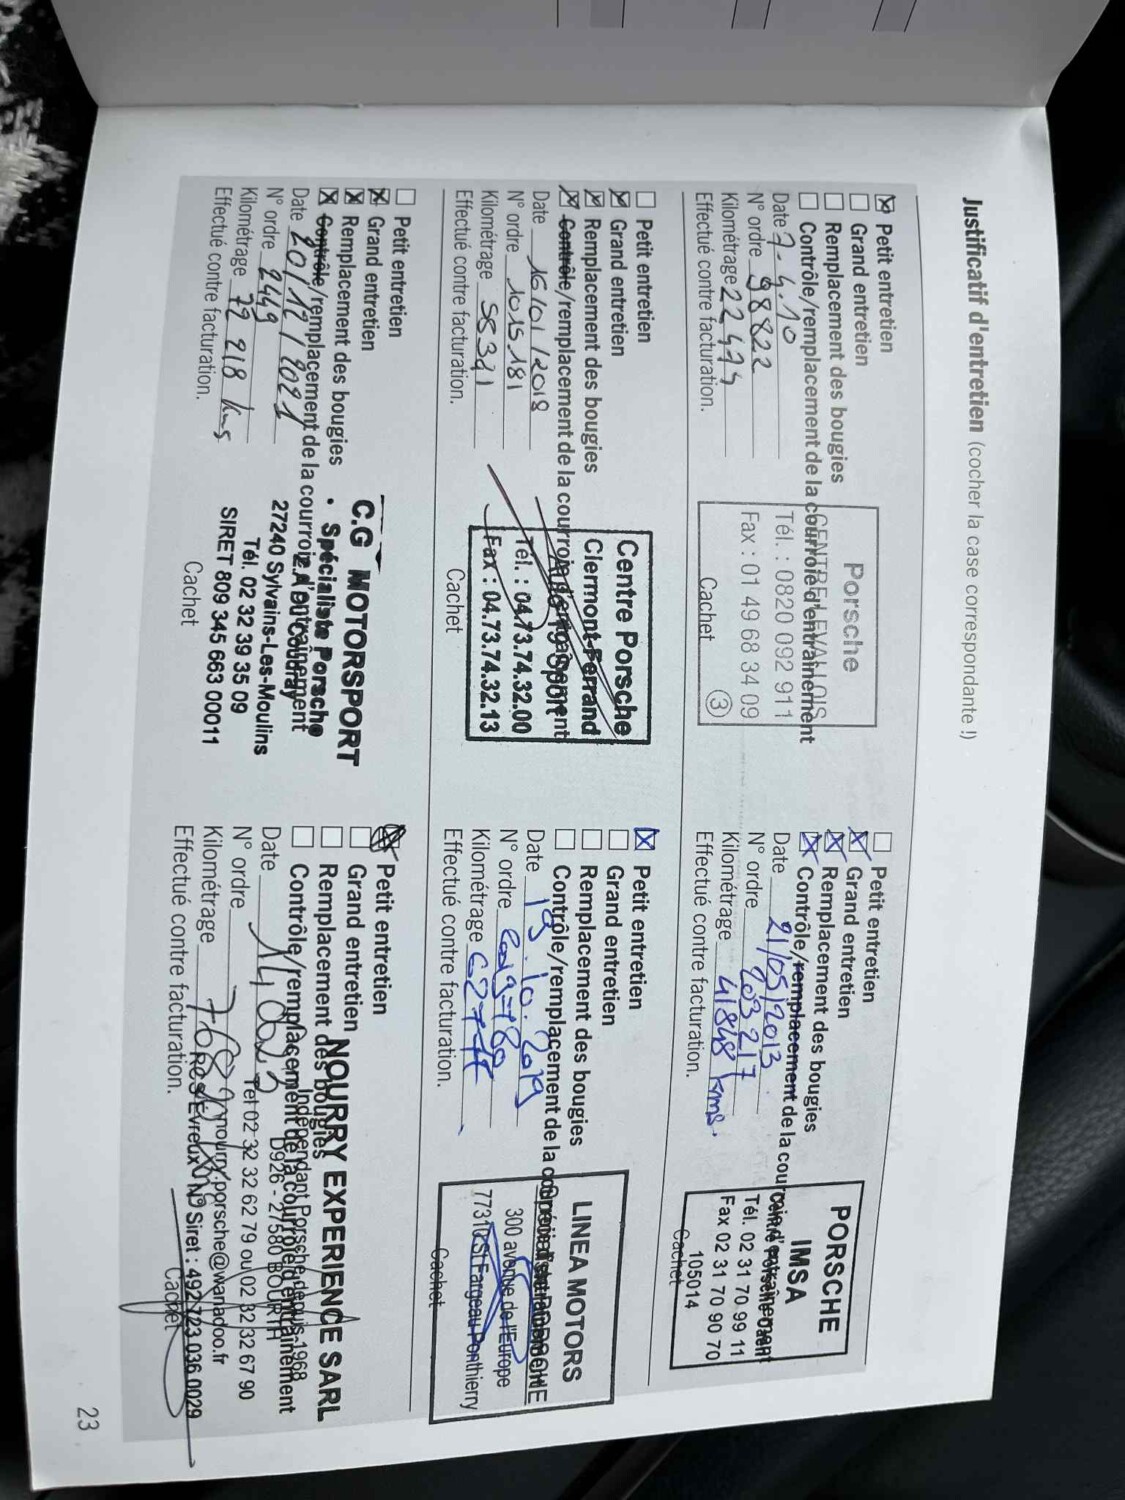 Justificatif d'entretien (cocher la case correspondante !)
Petit entretien
Grand entretien
Remplacement des bougies
Contrôle/remplacement de la courroie d'entraînement
Date 7-4.10
N° ordre 98822
Kilométrage 22474
Effectué contre facturation.
Porsche
CENTRE LEVALLOIS
Tél. : 0820 092 911
Fax : 01 49 68 34 09
Cachet
3
Petit entretien
Grand entretien
Remplacement des bougies
Contrôle/remplacement de la courroie d'entraînement
Date 21/05/2013
N° ordre 203217
Kilométrage 41848 kms.
Effectué contre facturation.
PORSCHE
IMSA
Centre Porsche Caen
Tél. 02 31 70 99 11
Fax 02 31 70 90 70
105014
Cachet
Petit entretien
Grand entretien
Remplacement des bougies
Contrôle/remplacement de la courroie d'entraînement
Date 16/01/2018
N° ordre 1015181
Kilométrage 58391
Effectué contre facturation.
Centre Porsche
Clermont-Ferrand
Sport
Tél. : 04.73.74.32.00
Fax : 04.73.74.32.13
Cachet
Petit entretien
Grand entretien
Remplacement des bougies
Contrôle/remplacement de la
Date 19.10.2019
N° ordre
Kilométrage
Effectué contre facturation.
LINEA MOTORS
PORSCHE
300 avenue de l'Europe
77310 St Fargeau Ponthierry
Cachet
Petit entretien
Grand entretien
Remplacement des bougies
Contrôle/remplacement de la courroie d'entraînement
Date 20/12/2021
N° ordre 2449
Kilométrage 72 218 kms
Effectué contre facturation.
C.G MOTORSPORT
• Spécialiste Porsche
Z.A du Coudray
27240 Sylvains-Les-Moulins
Tél. 02 32 39 35 09
SIRET 809 345 663 00011
Cachet
Petit entretien
Grand entretien
Remplacement des bougies
Contrôle/remplacement de la courroie d'entraînement
Date
N° ordre
Kilométrage
Effectué contre facturation.
NOURRY EXPERIENCE SARL
Indépendant Porsche depuis 1968
D926 - 27580 BOURTH
Tel 02 32 32 62 79 ou 02 32 32 67 90
nourry.porsche@wanadoo.fr
RCS Evreux N° Siret : 492 723 036 0029
Cachet
23